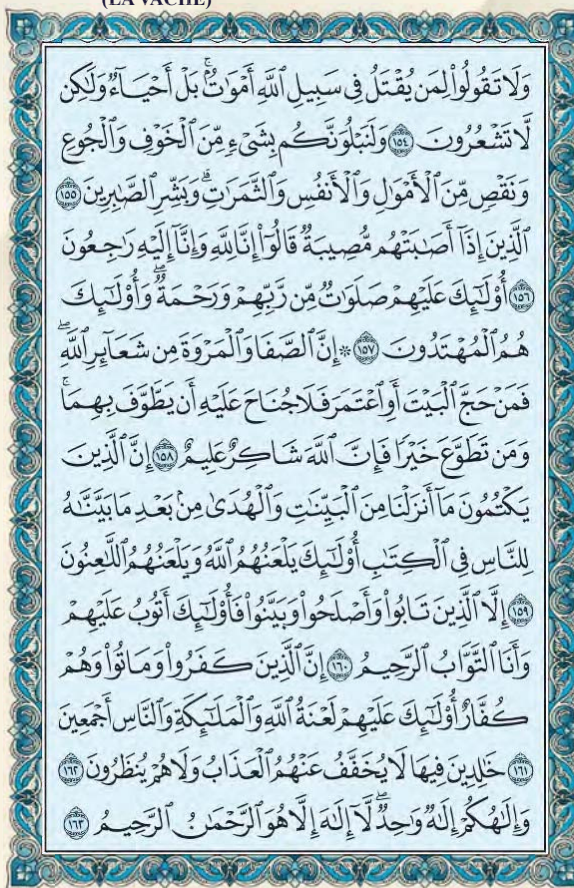 (LA VACHE)
وَلَا تَقُولُوا۟ لِمَن يُقْتَلُ فِى سَبِيلِ ٱللَّهِ أَمْوَٰتٌۢ ۚ بَلْ أَحْيَآءٌ وَلَٰكِن
لَّا تَشْعُرُونَ ١٥٤ وَلَنَبْلُوَنَّكُم بِشَىْءٍ مِّنَ ٱلْخَوْفِ وَٱلْجُوعِ
وَنَقْصٍ مِّنَ ٱلْأَمْوَٰلِ وَٱلْأَنفُسِ وَٱلثَّمَرَٰتِ ۗ وَبَشِّرِ ٱلصَّٰبِرِينَ ١٥٥
ٱلَّذِينَ إِذَآ أَصَٰبَتْهُم مُّصِيبَةٌ قَالُوٓا۟ إِنَّا لِلَّهِ وَإِنَّآ إِلَيْهِ رَٰجِعُونَ
١٥٦ أُو۟لَٰٓئِكَ عَلَيْهِمْ صَلَوَٰتٌ مِّن رَّبِّهِمْ وَرَحْمَةٌ ۖ وَأُو۟لَٰٓئِكَ
هُمُ ٱلْمُهْتَدُونَ ١٥٧ ۞ إِنَّ ٱلصَّفَا وَٱلْمَرْوَةَ مِن شَعَآئِرِ ٱللَّهِ ۖ
فَمَنْ حَجَّ ٱلْبَيْتَ أَوِ ٱعْتَمَرَ فَلَا جُنَاحَ عَلَيْهِ أَن يَطَّوَّفَ بِهِمَا ۚ
وَمَن تَطَوَّعَ خَيْرًا فَإِنَّ ٱللَّهَ شَاكِرٌ عَلِيمٌ ١٥٨ إِنَّ ٱلَّذِينَ
يَكْتُمُونَ مَآ أَنزَلْنَا مِنَ ٱلْبَيِّنَٰتِ وَٱلْهُدَىٰ مِنۢ بَعْدِ مَا بَيَّنَّٰهُ
لِلنَّاسِ فِى ٱلْكِتَٰبِ أُو۟لَٰٓئِكَ يَلْعَنُهُمُ ٱللَّهُ وَيَلْعَنُهُمُ ٱللَّٰعِنُونَ
١٥٩ إِلَّا ٱلَّذِينَ تَابُوا۟ وَأَصْلَحُوا۟ وَبَيَّنُوا۟ فَأُو۟لَٰٓئِكَ أَتُوبُ عَلَيْهِمْ
وَأَنَا ٱلتَّوَّابُ ٱلرَّحِيمُ ١٦٠ إِنَّ ٱلَّذِينَ كَفَرُوا۟ وَمَاتُوا۟ وَهُمْ
كُفَّارٌ أُو۟لَٰٓئِكَ عَلَيْهِمْ لَعْنَةُ ٱللَّهِ وَٱلْمَلَٰٓئِكَةِ وَٱلنَّاسِ أَجْمَعِينَ
١٦١ خَٰلِدِينَ فِيهَا لَا يُخَفَّفُ عَنْهُمُ ٱلْعَذَابُ وَلَا هُمْ يُنظَرُونَ ١٦٢
وَإِلَٰهُكُمْ إِلَٰهٌ وَٰحِدٌ ۖ لَّآ إِلَٰهَ إِلَّا هُوَ ٱلرَّحْمَٰنُ ٱلرَّحِيمُ ١٦٣